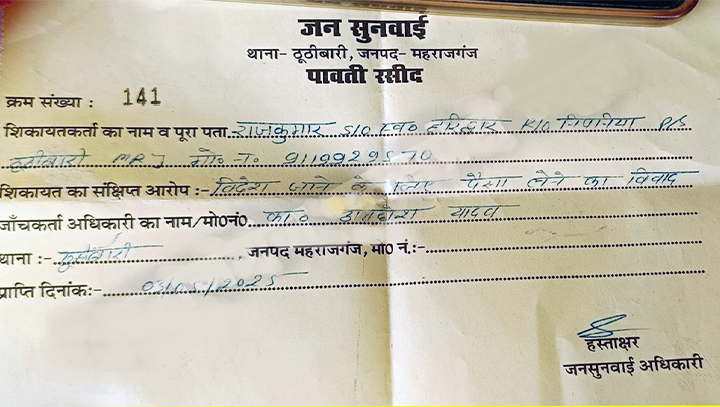 जन सुनवाई
थाना- ठूठीबारी, जनपद- महराजगंज
पावती रसीद
क्रम संख्या : 141
शिकायतकर्ता का नाम व पूरा पता राजकुमार S/O स्व० हरिद्वार R/O निपनिया P/S
ठूठीबारी MRJ मो० न० 9119929570
शिकायत का संक्षिप्त आरोप :- विदेश जाने के लिए पैसा लेने का विवाद
जाँचकर्ता अधिकारी का नाम/मो0नं0 का० यादव
थाना :- ठूठीबारी जनपद महराजगंज, मो0 नं.:-
प्राप्ति दिनांक:- 03/05/2025
हस्ताक्षर
जनसुनवाई अधिकारी